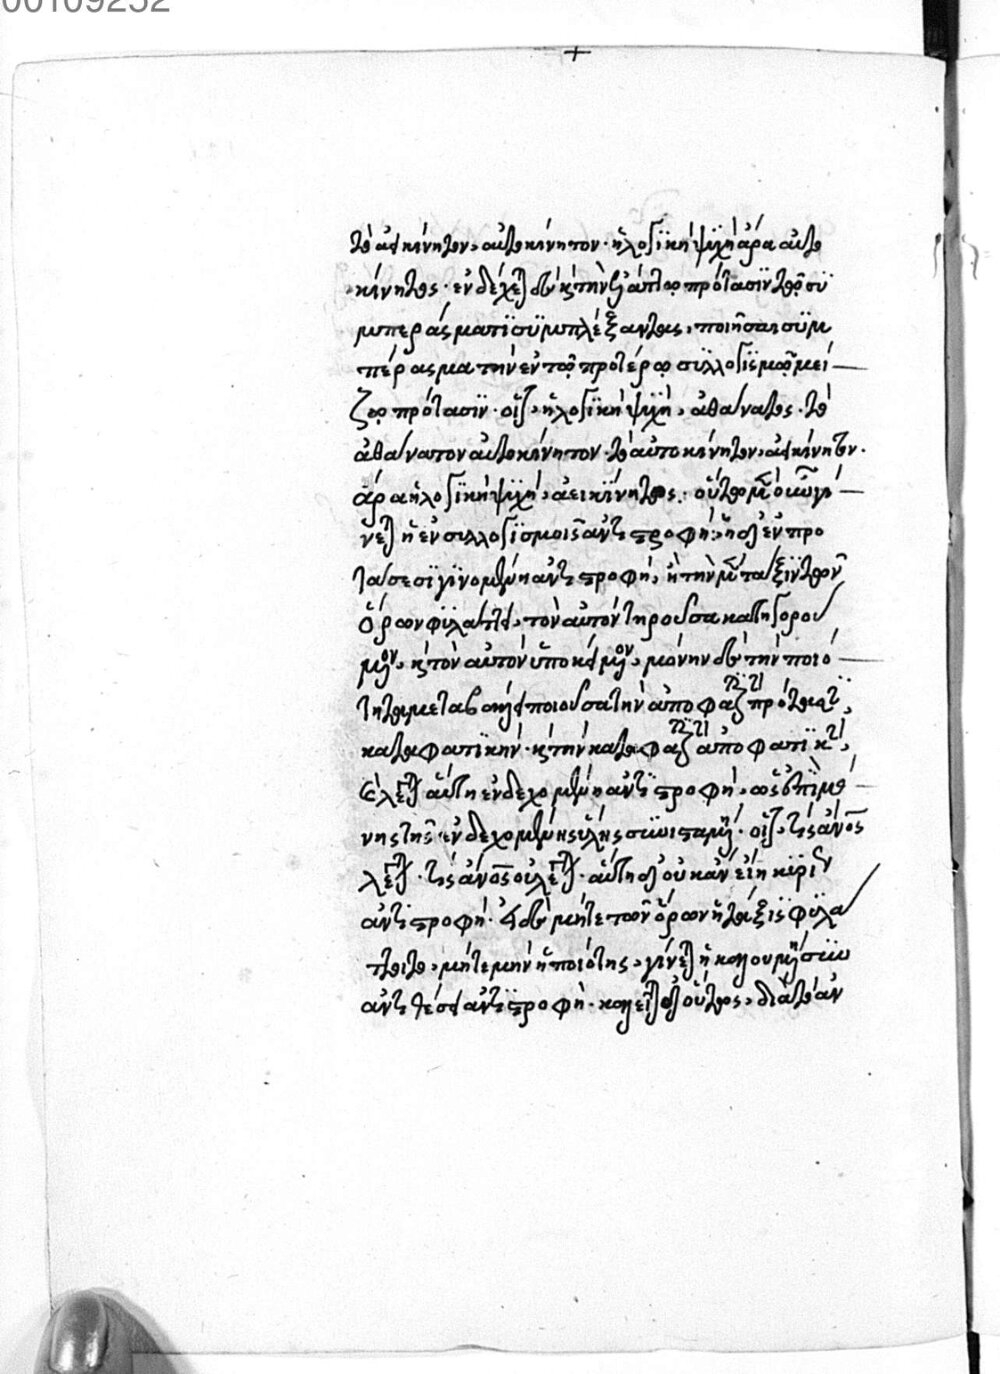 00109252
+
τὸ ἀεικίνητον, αὐτοκίνητον· ἡ λογικὴ ψυχὴ ἄρα αὐτο
κίνητος· ἐνδέχεται δὲ καὶ τὴν ἐλάττω πρότασιν τῷ συ
μπεράσματι συμπλέξαντας, ποιῆσαι συμ
πέρασμα τὴν ἐν τῷ προτέρῳ συλλογισμῷ μεί
ζω πρότασιν· οἷον, ἡ λογικὴ ψυχὴ, ἀθάνατος· τὸ
ἀθάνατον αὐτοκίνητον· τὸ αὐτοκίνητον, ἀεικίνητον·
ἄρα ἡ λογικὴ ψυχὴ, ἀεικίνητος· οὕτω μὲν οὖν γί
νεται ἡ ἐν συλλογισμοῖς ἀντιστροφή· ἡ δὲ ἐν προ
τάσεσι γινομένη ἀντιστροφὴ, ἢ τὴν μὲν τάξιν τῶν
ὅρων φυλάττει, τὸν αὐτὸν τηροῦσα κατηγορού
μενον, καὶ τὸν αὐτὸν ὑποκείμενον, μόνην δὲ τὴν ποιό
τητα μεταβάλλει ποιοῦσα τὴν ἀποφατικὴν πρότασιν
καταφατικήν· καὶ τὴν καταφατικὴν ἀποφατικὴν,
λέγεται αὕτη ἐνδεχομένη ἀντιστροφὴ, ὡς ἐπὶ μό
νης τῆς ἐνδεχομένης ὕλης συνισταμένη· οἷον, τὶς ἄνθρωπος
λούεται· τὶς ἄνθρωπος οὐ λούεται· αὕτη δὲ οὐκ ἂν εἴη κυρίως
ἀντιστροφή· εἰ δὲ μήτε τῶν ὅρων ἡ τάξις φυλά
ττοιτο, μήτε μὴν ἡ ποιότης, γίνεται ἡ καλουμένη σὺν
ἀντιθέσει ἀντιστροφή· καλεῖται δὲ οὕτως, διὰ τὸ ἀν